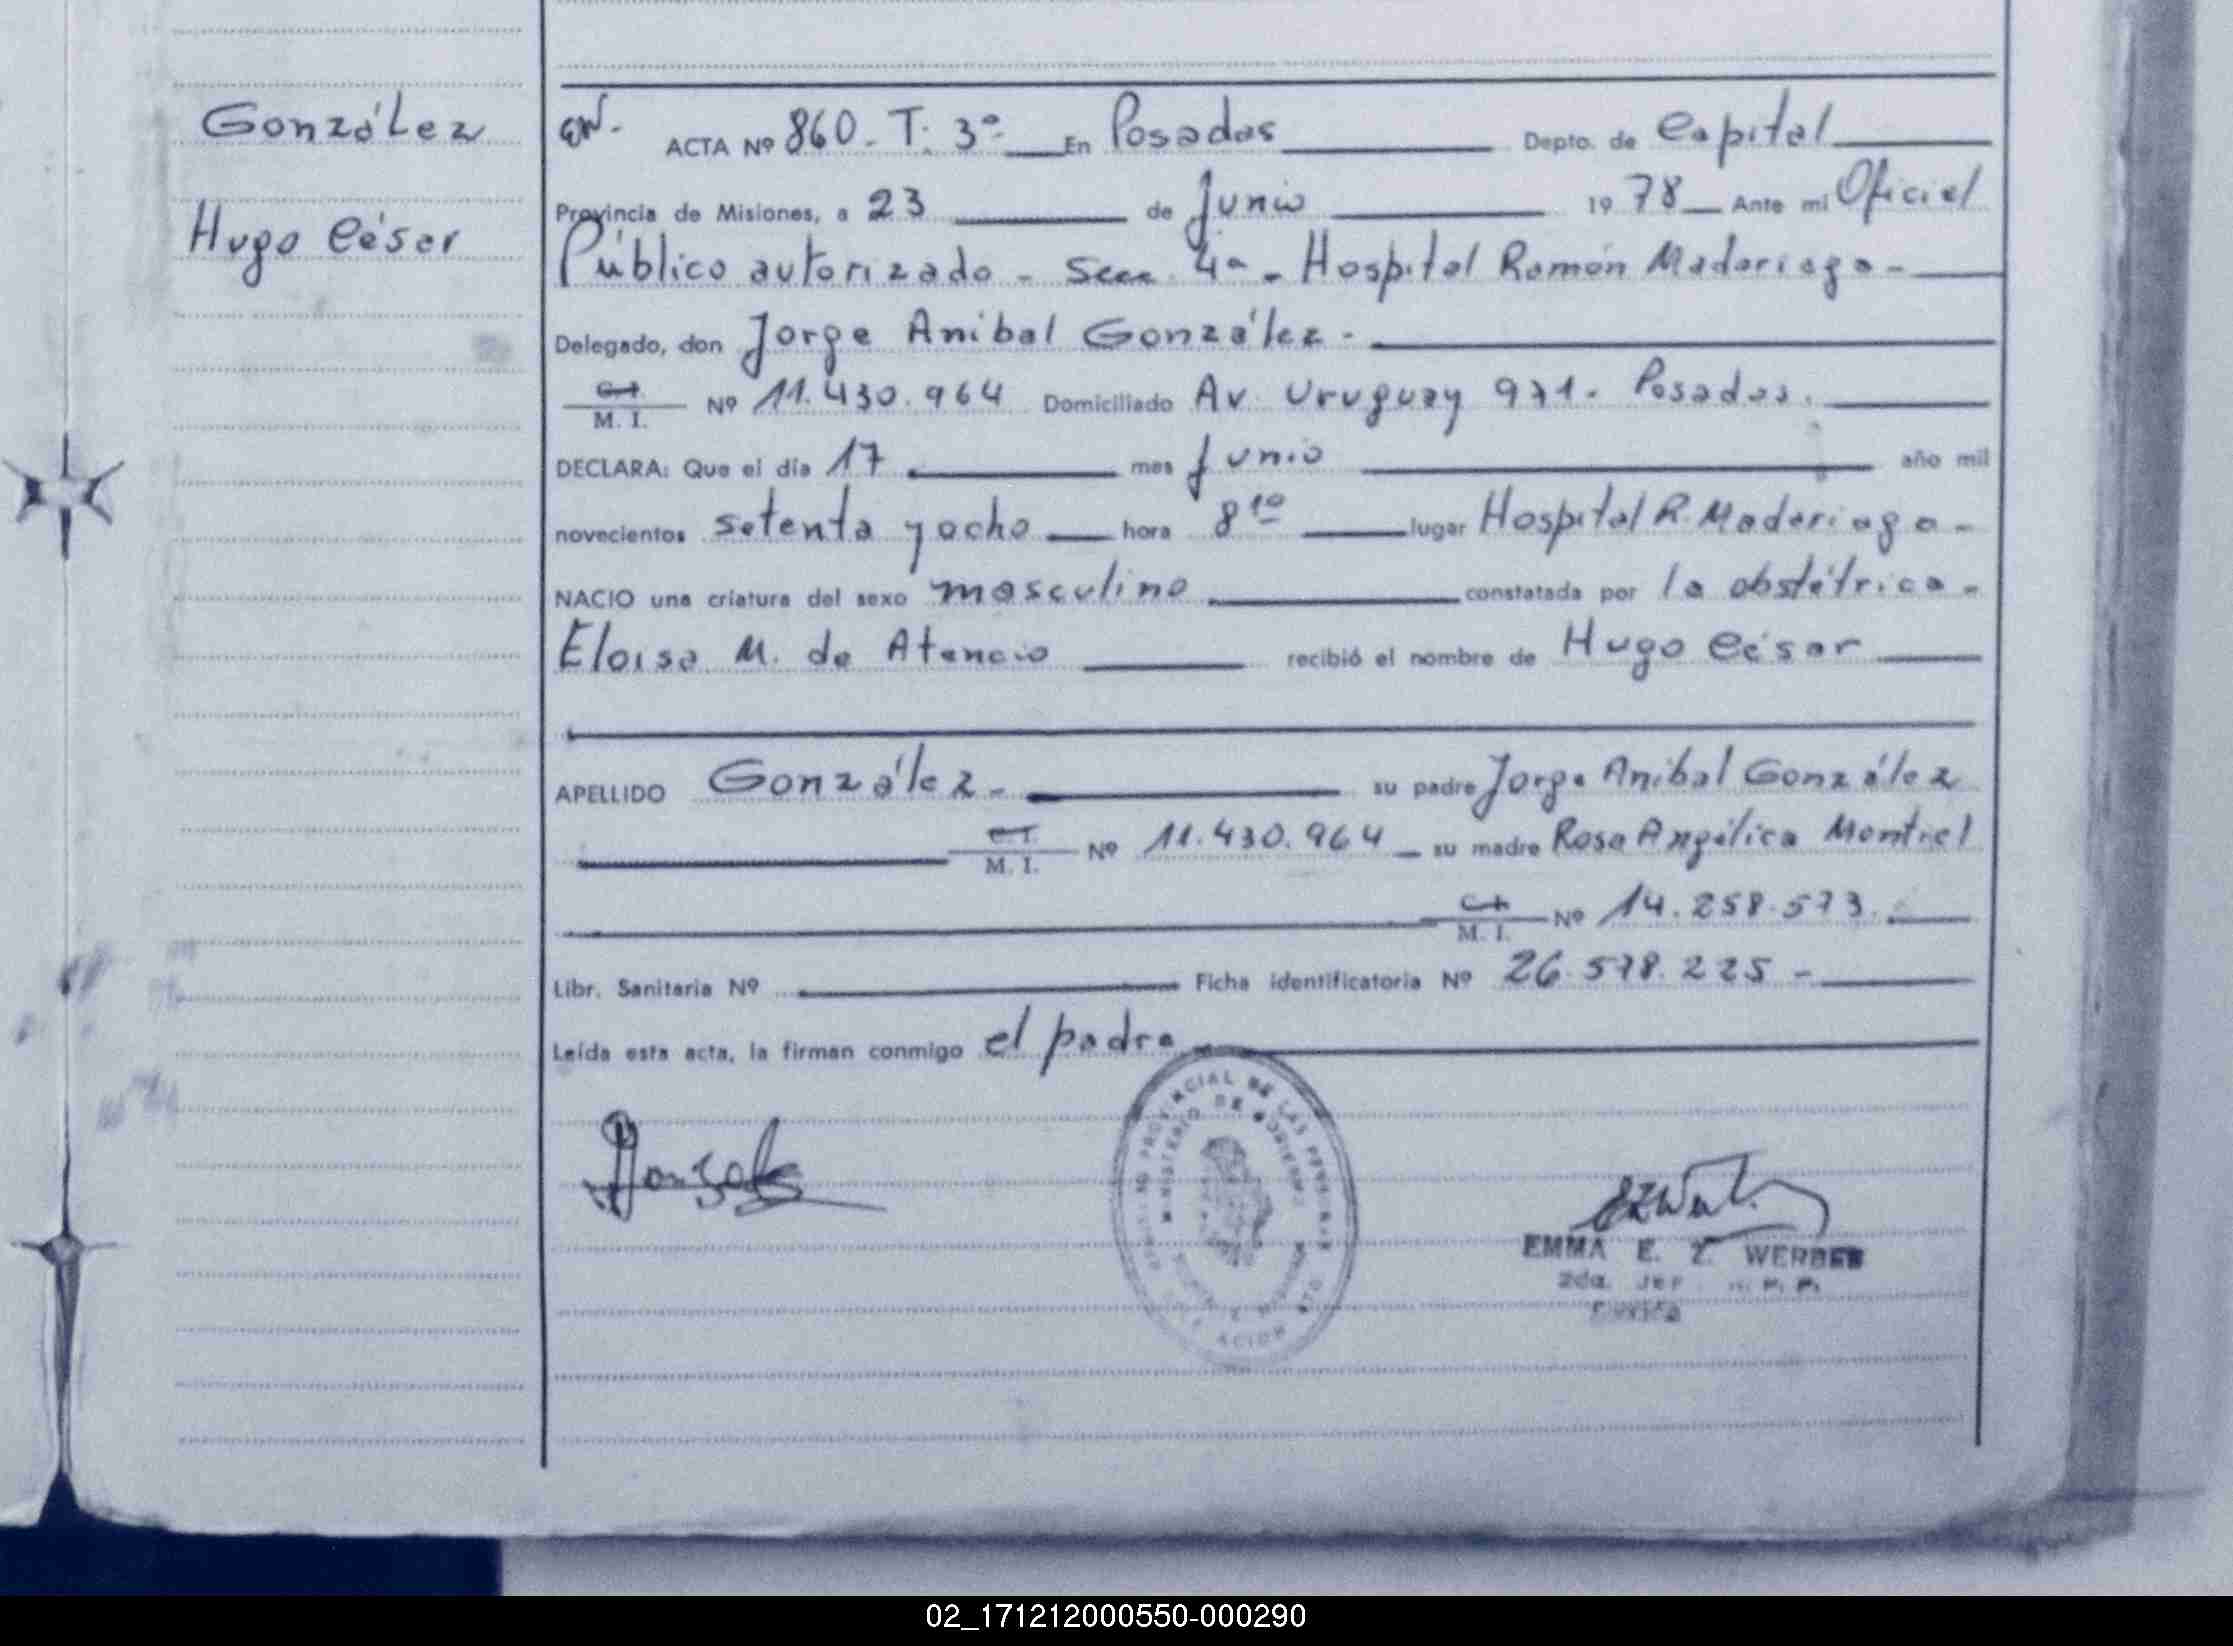 González
Hugo César
ACTA Nº 860 - T: 3º En Posadas Depto. de Capital
Provincia de Misiones, a 23 de Junio 1978 Ante mi Oficial
Público autorizado - Secc 4ª - Hospital Ramón Madariaga -
Delegado, don Jorge Anibal González -
C.I. M. I. Nº 11.430.964 Domiciliado Av. Uruguay 971 - Posadas.
DECLARA: Que el día 17 mes Junio año mil
novecientos setenta y ocho hora 8 10 lugar Hospital R. Madariaga -
NACIO una criatura del sexo masculino constatada por la obstétrica -
Eloisa M. de Atencio recibió el nombre de Hugo César
APELLIDO González - su padre Jorge Anibal González
C.I. M. I. Nº 11.430.964 su madre Rosa Angélica Montiel
C.I. M. I. Nº 14.258.573
Libr. Sanitaria Nº Ficha identificatoria Nº 26.578.225 -
Leída esta acta, la firman conmigo el padre
EMMA E. Z. WERBER
2da. Jef
02_171212000550-000290